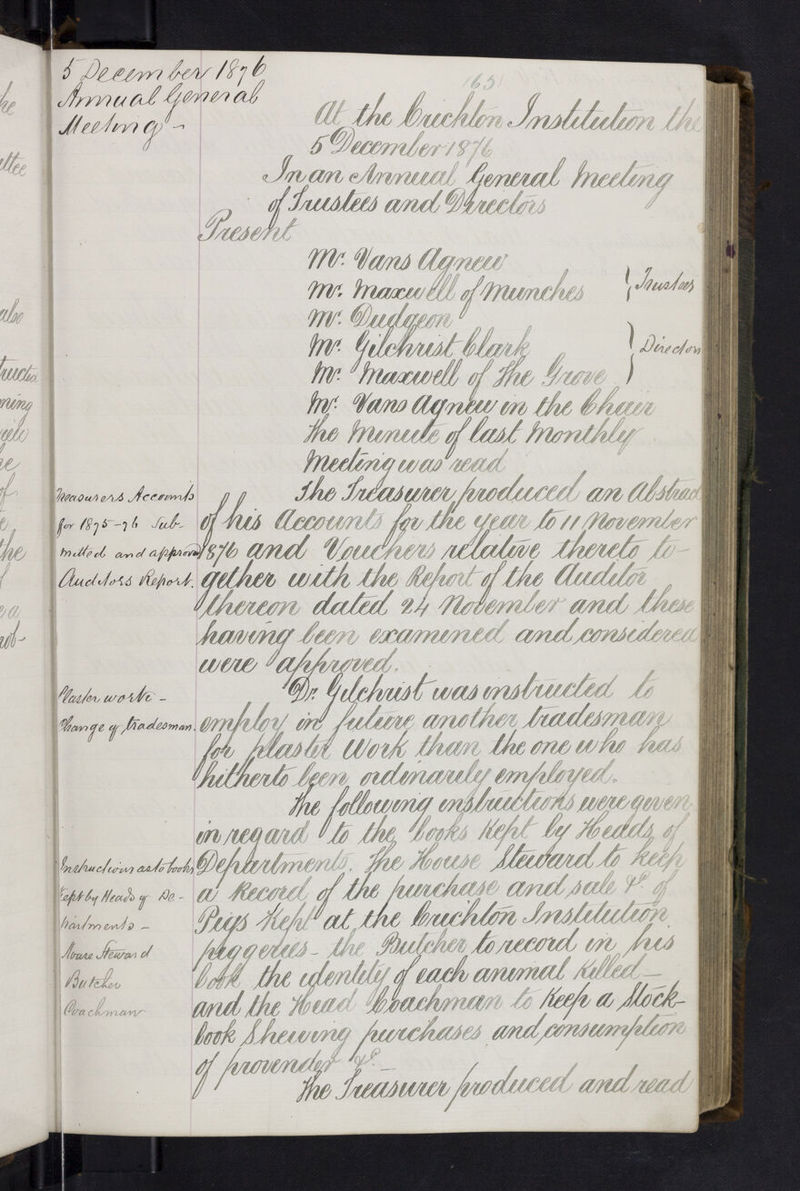 5 December 1876
Annual General
Meeting -
65
At the Crichton Institution the
5 December 1876
In an Annual General Meeting
of Trustees and Directors
Present
Mr. Vans Agnew
Mr. Maxwell of Munches } Trustees
Mr. Dudgeon
Mr. Gilchrist Clark } Directors
Mr. Maxwell of The Grove
Mr. Vans Agnew in the Chair
The Minute of last Monthly
Meeting was read
Treasurers Accounts
for 1875-76 Sub-
mitted and approved
Auditors Report.
The Treasurer produced an Abstract
of his Accounts for the year to 11 November
1876 and Vouchers relative thereto to-
gether with the Report of the Auditor
thereon dated 24 November and these
having been examined and considered
were approved.
Plaster work -
Change of tradesman.
Dr. Gilchrist was instructed to
employ in future another tradesman
for plaster Work than the one who has
hitherto been ordinarily employed.
The following instructions were given
in regard to the books kept by Heads of
Instructions as to books
kept by Heads of De-
partments -
House Steward
Butcher
Coachman
Departments. The House Steward to keep
a Record of the purchase and sale &c. of
Pigs kept at the Crichton Institution
piggeries - the Butcher to record in his
book the identity of each animal killed -
and the Head Coachman to keep a Stock-
book shewing purchases and consumption
of provender &c. -
The Treasurer produced and read